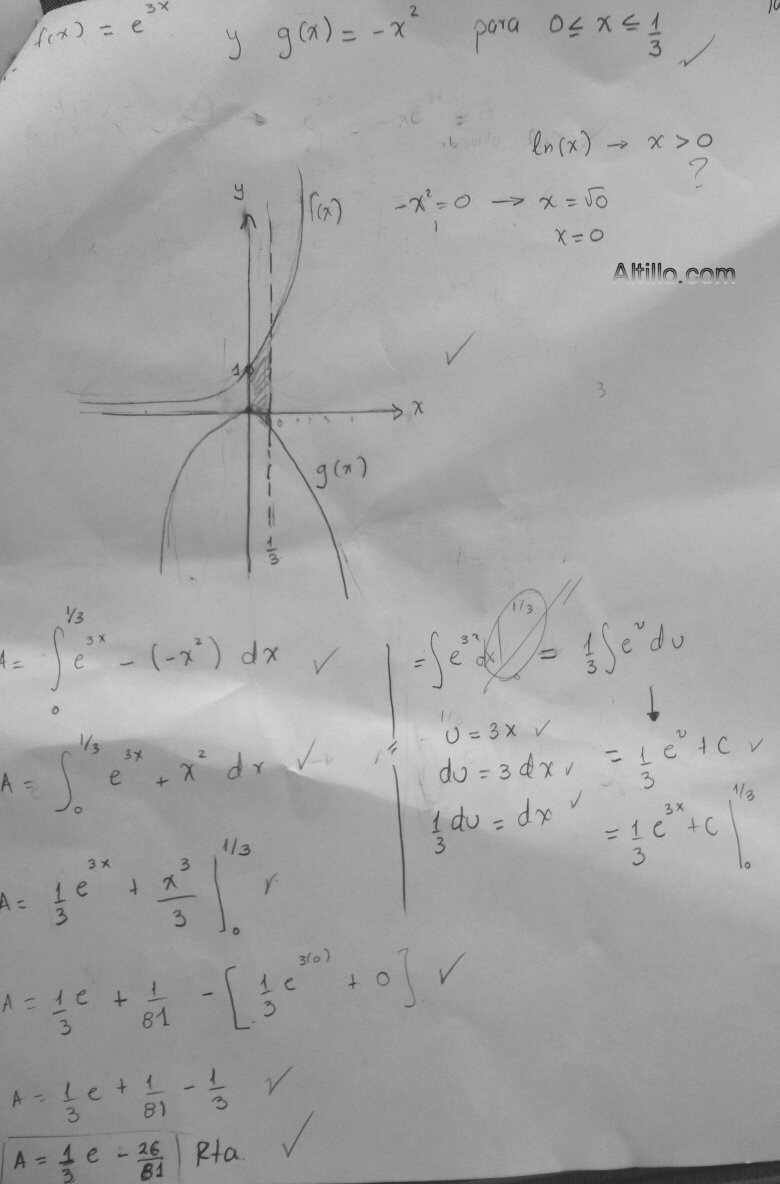 f(x) = e^3x y g(x) = -x^2 para 0 ≤ x ≤ 1/3 ✓
ln(x) → x > 0
?
-x^2 = 0 → x = √0
x = 0
Altillo.com
y
f(x)
1
x
g(x)
1/3
3
A = ∫_0^1/3 e^3x - (-x^2) dx ✓
A = ∫_0^1/3 e^3x + x^2 dx ✓
A = 1/3 e^3x + x^3/3 |_0^1/3 ✓
A = 1/3 e + 1/81 - [1/3 e^3(0) + 0] ✓
A = 1/3 e + 1/81 - 1/3 ✓
A = 1/3 e - 26/81 Rta. ✓
= ∫ e^3x dx |_0^1/3 = 1/3 ∫ e^u du
u = 3x ✓
du = 3 dx ✓
1/3 du = dx ✓
↓
= 1/3 e^u + C ✓
= 1/3 e^3x + C |_0^1/3